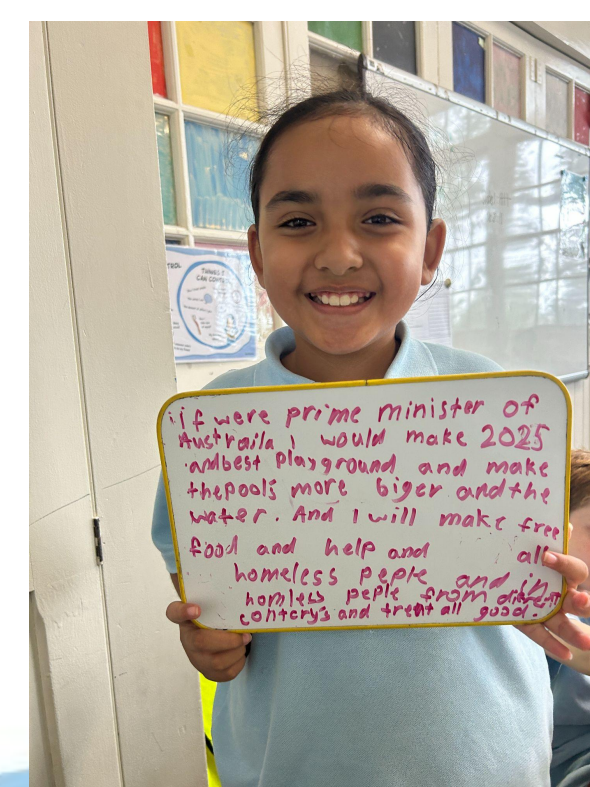 if were prime minister of
Austraila I would make 2025
andbest playground and make
thepools more biger andthe
water. And I will make free
food and help and all
homeless peple and in
homless peple from
contcry's and treat all good.
TROL
THINGS I
CAN CONTROL